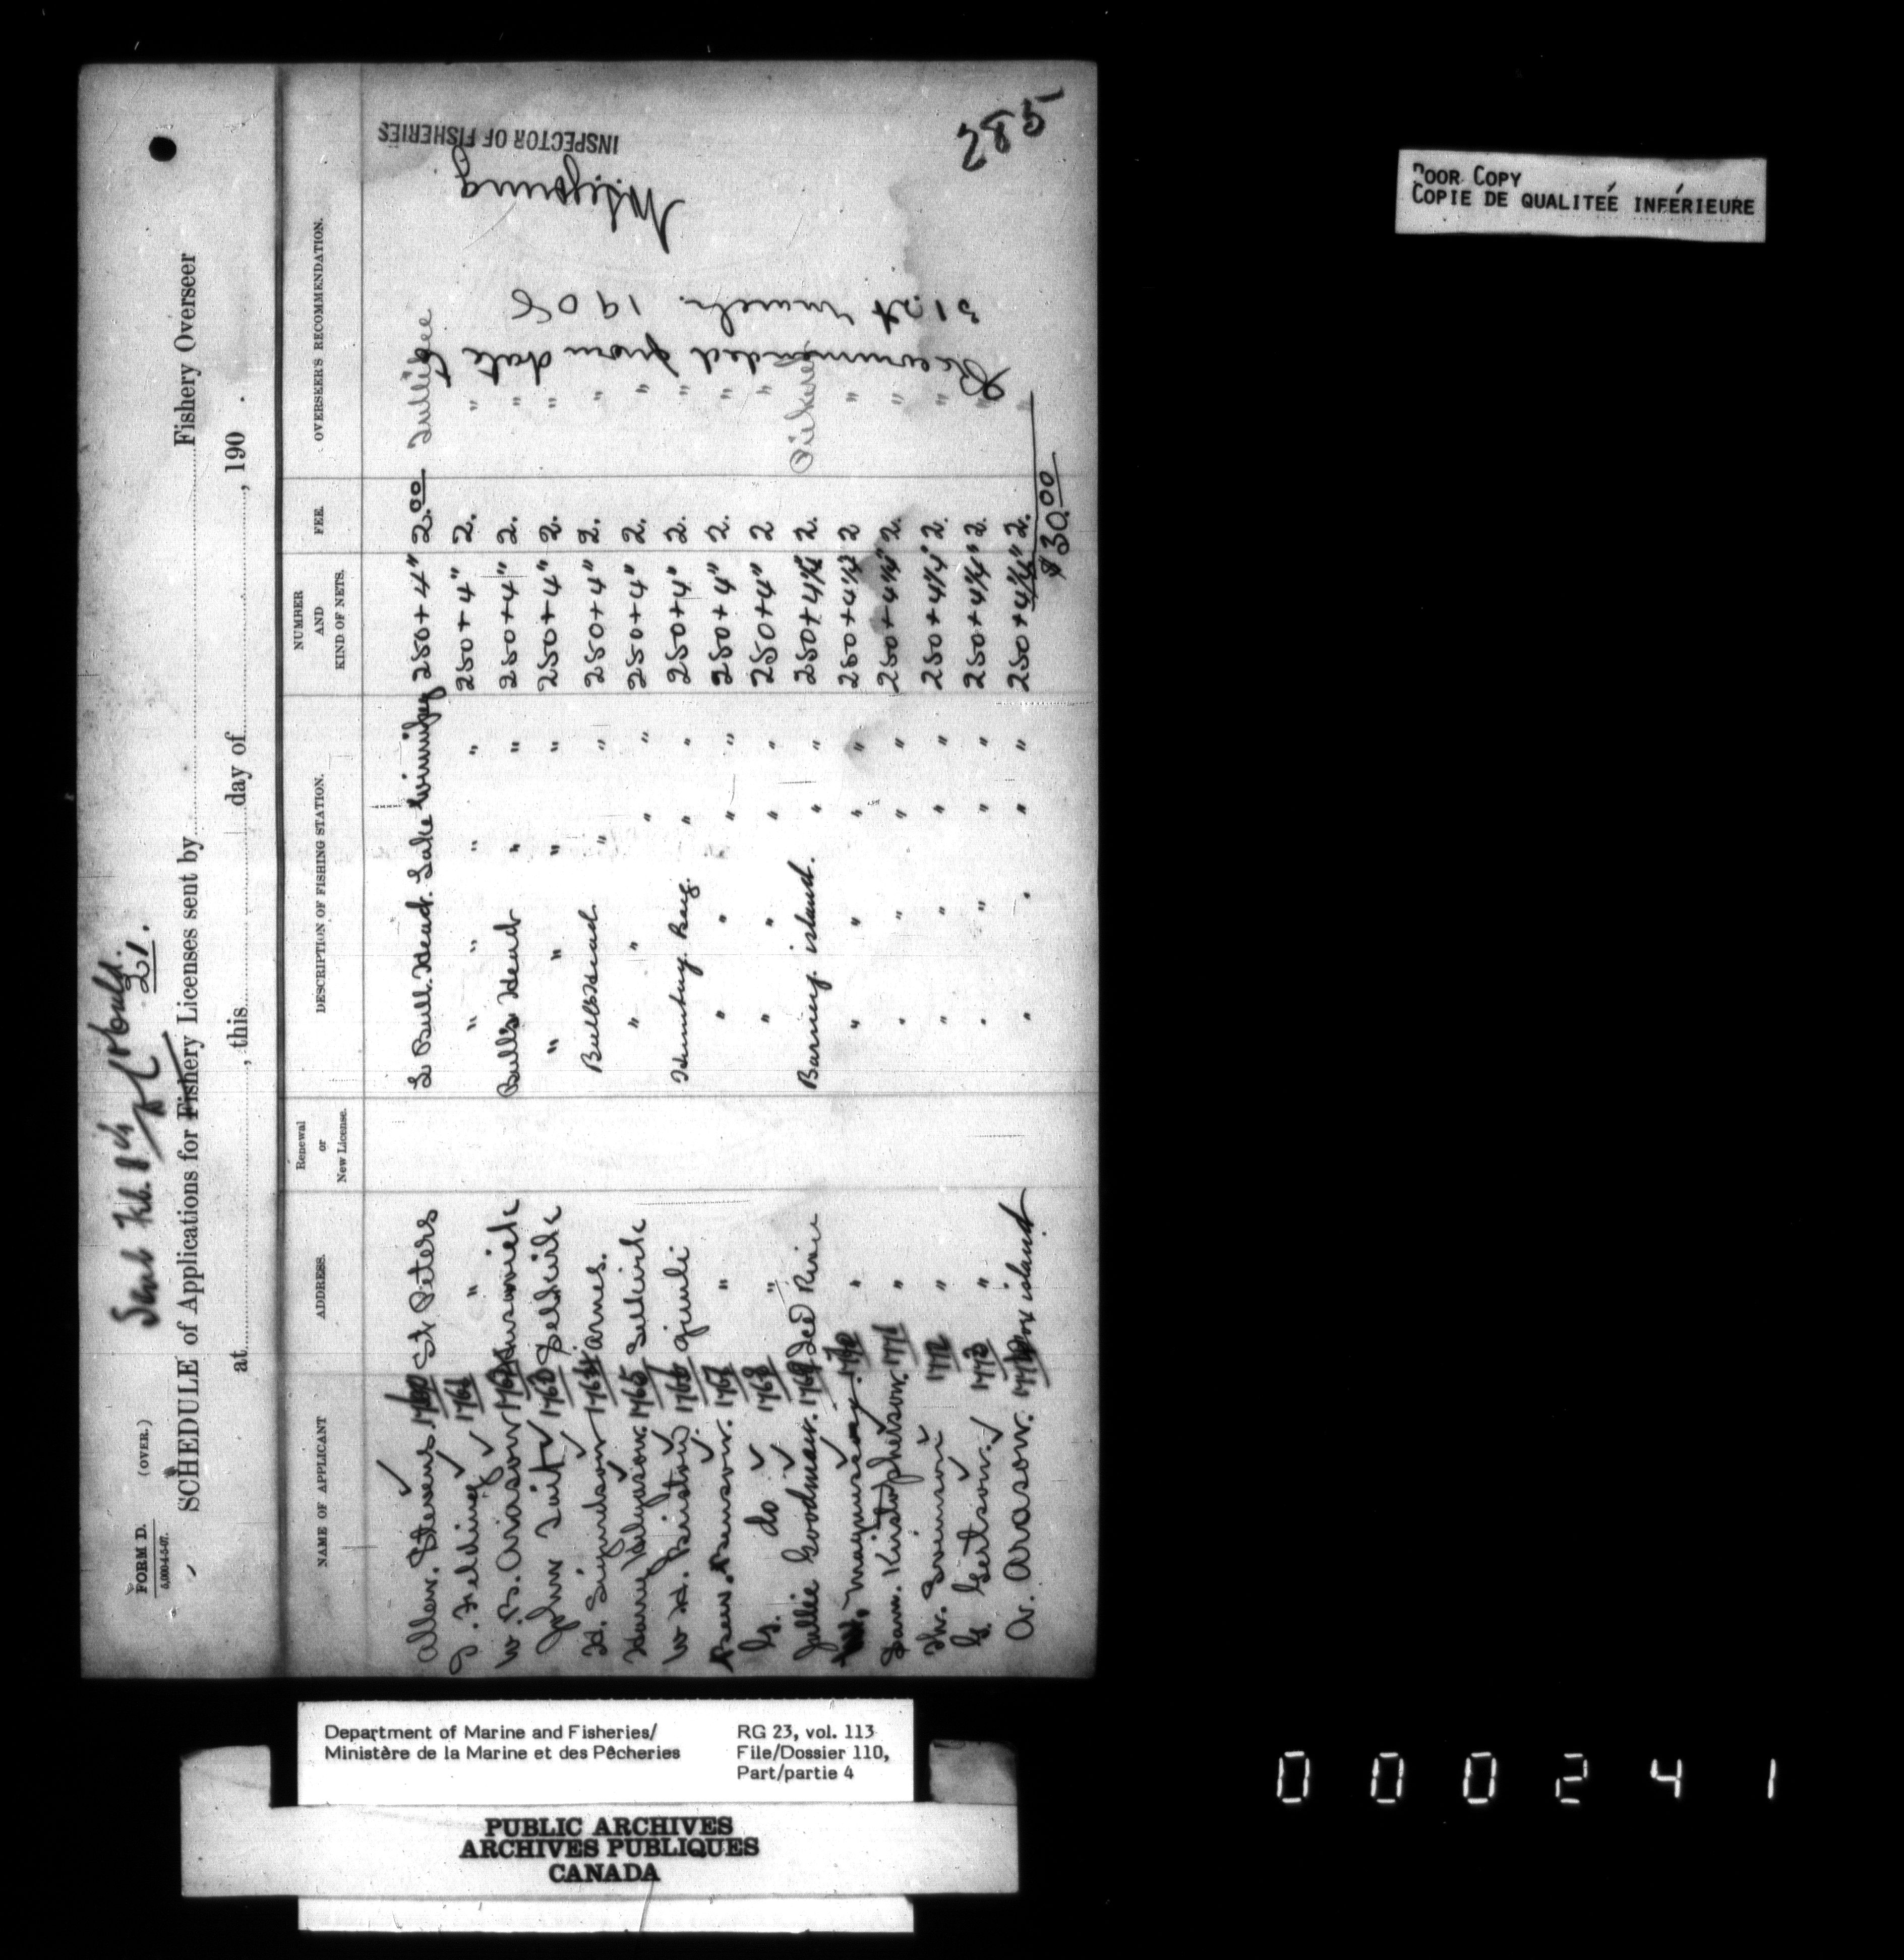 POOR COPY
COPIE DE QUALITEÉ INFÉRIEURE
FORM D. (OVER.)
5,000-4-5-07.
Sent Feb. 8th
21.
SCHEDULE of Applications for Fishery Licenses sent by Fishery Overseer
at , this day of , 190 .
NAME OF APPLICANT ADDRESS. Renewal or New License. DESCRIPTION OF FISHING STATION. NUMBER AND KIND OF NETS. FEE. OVERSEER'S RECOMMENDATION.
Allen Stevens 1760 St Peters Bull Head Lake Winnipeg 250+4" 2.00 Tullibee
Fielding 1761 " " " " " 250+4" 2. "
W. B. Arason 1762 Husawick Bulls Head " " 250+4" 2. "
John Tait 1763 Selkirk " " " " 250+4" 2. "
H. Sigurdson 1764 Arnes. Bulls Head " " 250+4" 2. "
Harry 1765 Selkirk " " " " 250+4" 2. "
W H. Bristow 1766 Gimli Humbug Bay. " " 250+4" 2. "
Ben. Benson. 1767 " " " " " 250+4" 2. "
G. do 1768 " " " " " 250+4" 2 "
Jullie Goodman. 1769 Iced River Barney island. " " 250+4¼ 2. Pickerel
Magnusson. 1770 " " " " " 250+4¼ 2 "
Sam. Kristopherson. 1771 " " " " " 250+4¼" 2. "
1772 " " " " " 250+4¼" 2. "
G. Gertson. 1773 " " " " " 250+4¼" 2. "
A. Arason. 1774 Fox island " " " " 250+4¼" 2. "
$30.00
Recommended from date
31st March 1908
W.S. Young
INSPECTOR OF FISHERIES
285
Department of Marine and Fisheries/
Ministère de la Marine et des Pêcheries
RG 23, vol. 113
File/Dossier 110,
Part/partie 4
PUBLIC ARCHIVES
ARCHIVES PUBLIQUES
CANADA
000241